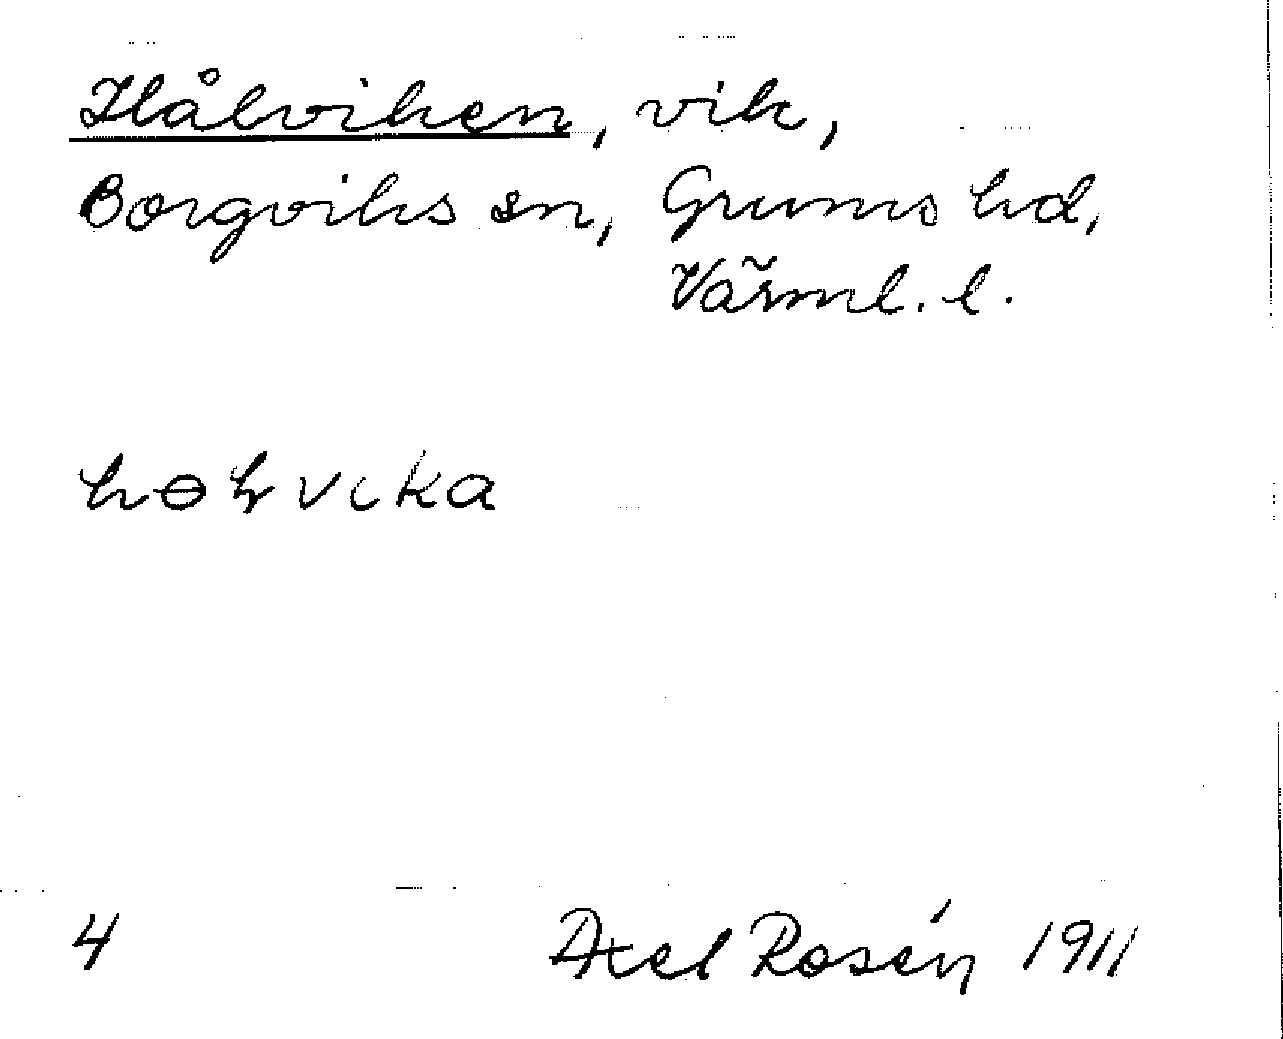 Hålviken, vik,
Borgviks sn, Grums hd,
Värml. l.
4
Axel Rosén 1911